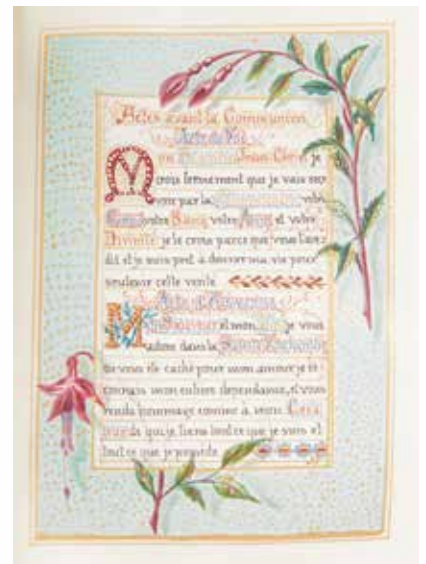 Actes avant la Communion
Acte de Foi
Mon Jesus-Christ je
crois fermement que je vais rece
voir par la votre
votre Sang votre Ame et votre
Divinité je le crois parce que vous l'avez
dit et je suis pret a donner ma vie pour
soutenir cette verité
Acte d'Adoration
Mon Seigneur et mon je vous
adore dans la Sainte Eucharistie
ou vous êtes caché pour mon amour je re
connais mon entiere dependance, et vous
rends hommage comme a mon Créa
teur de qui je tiens tout ce que je suis et
tout ce que je possede